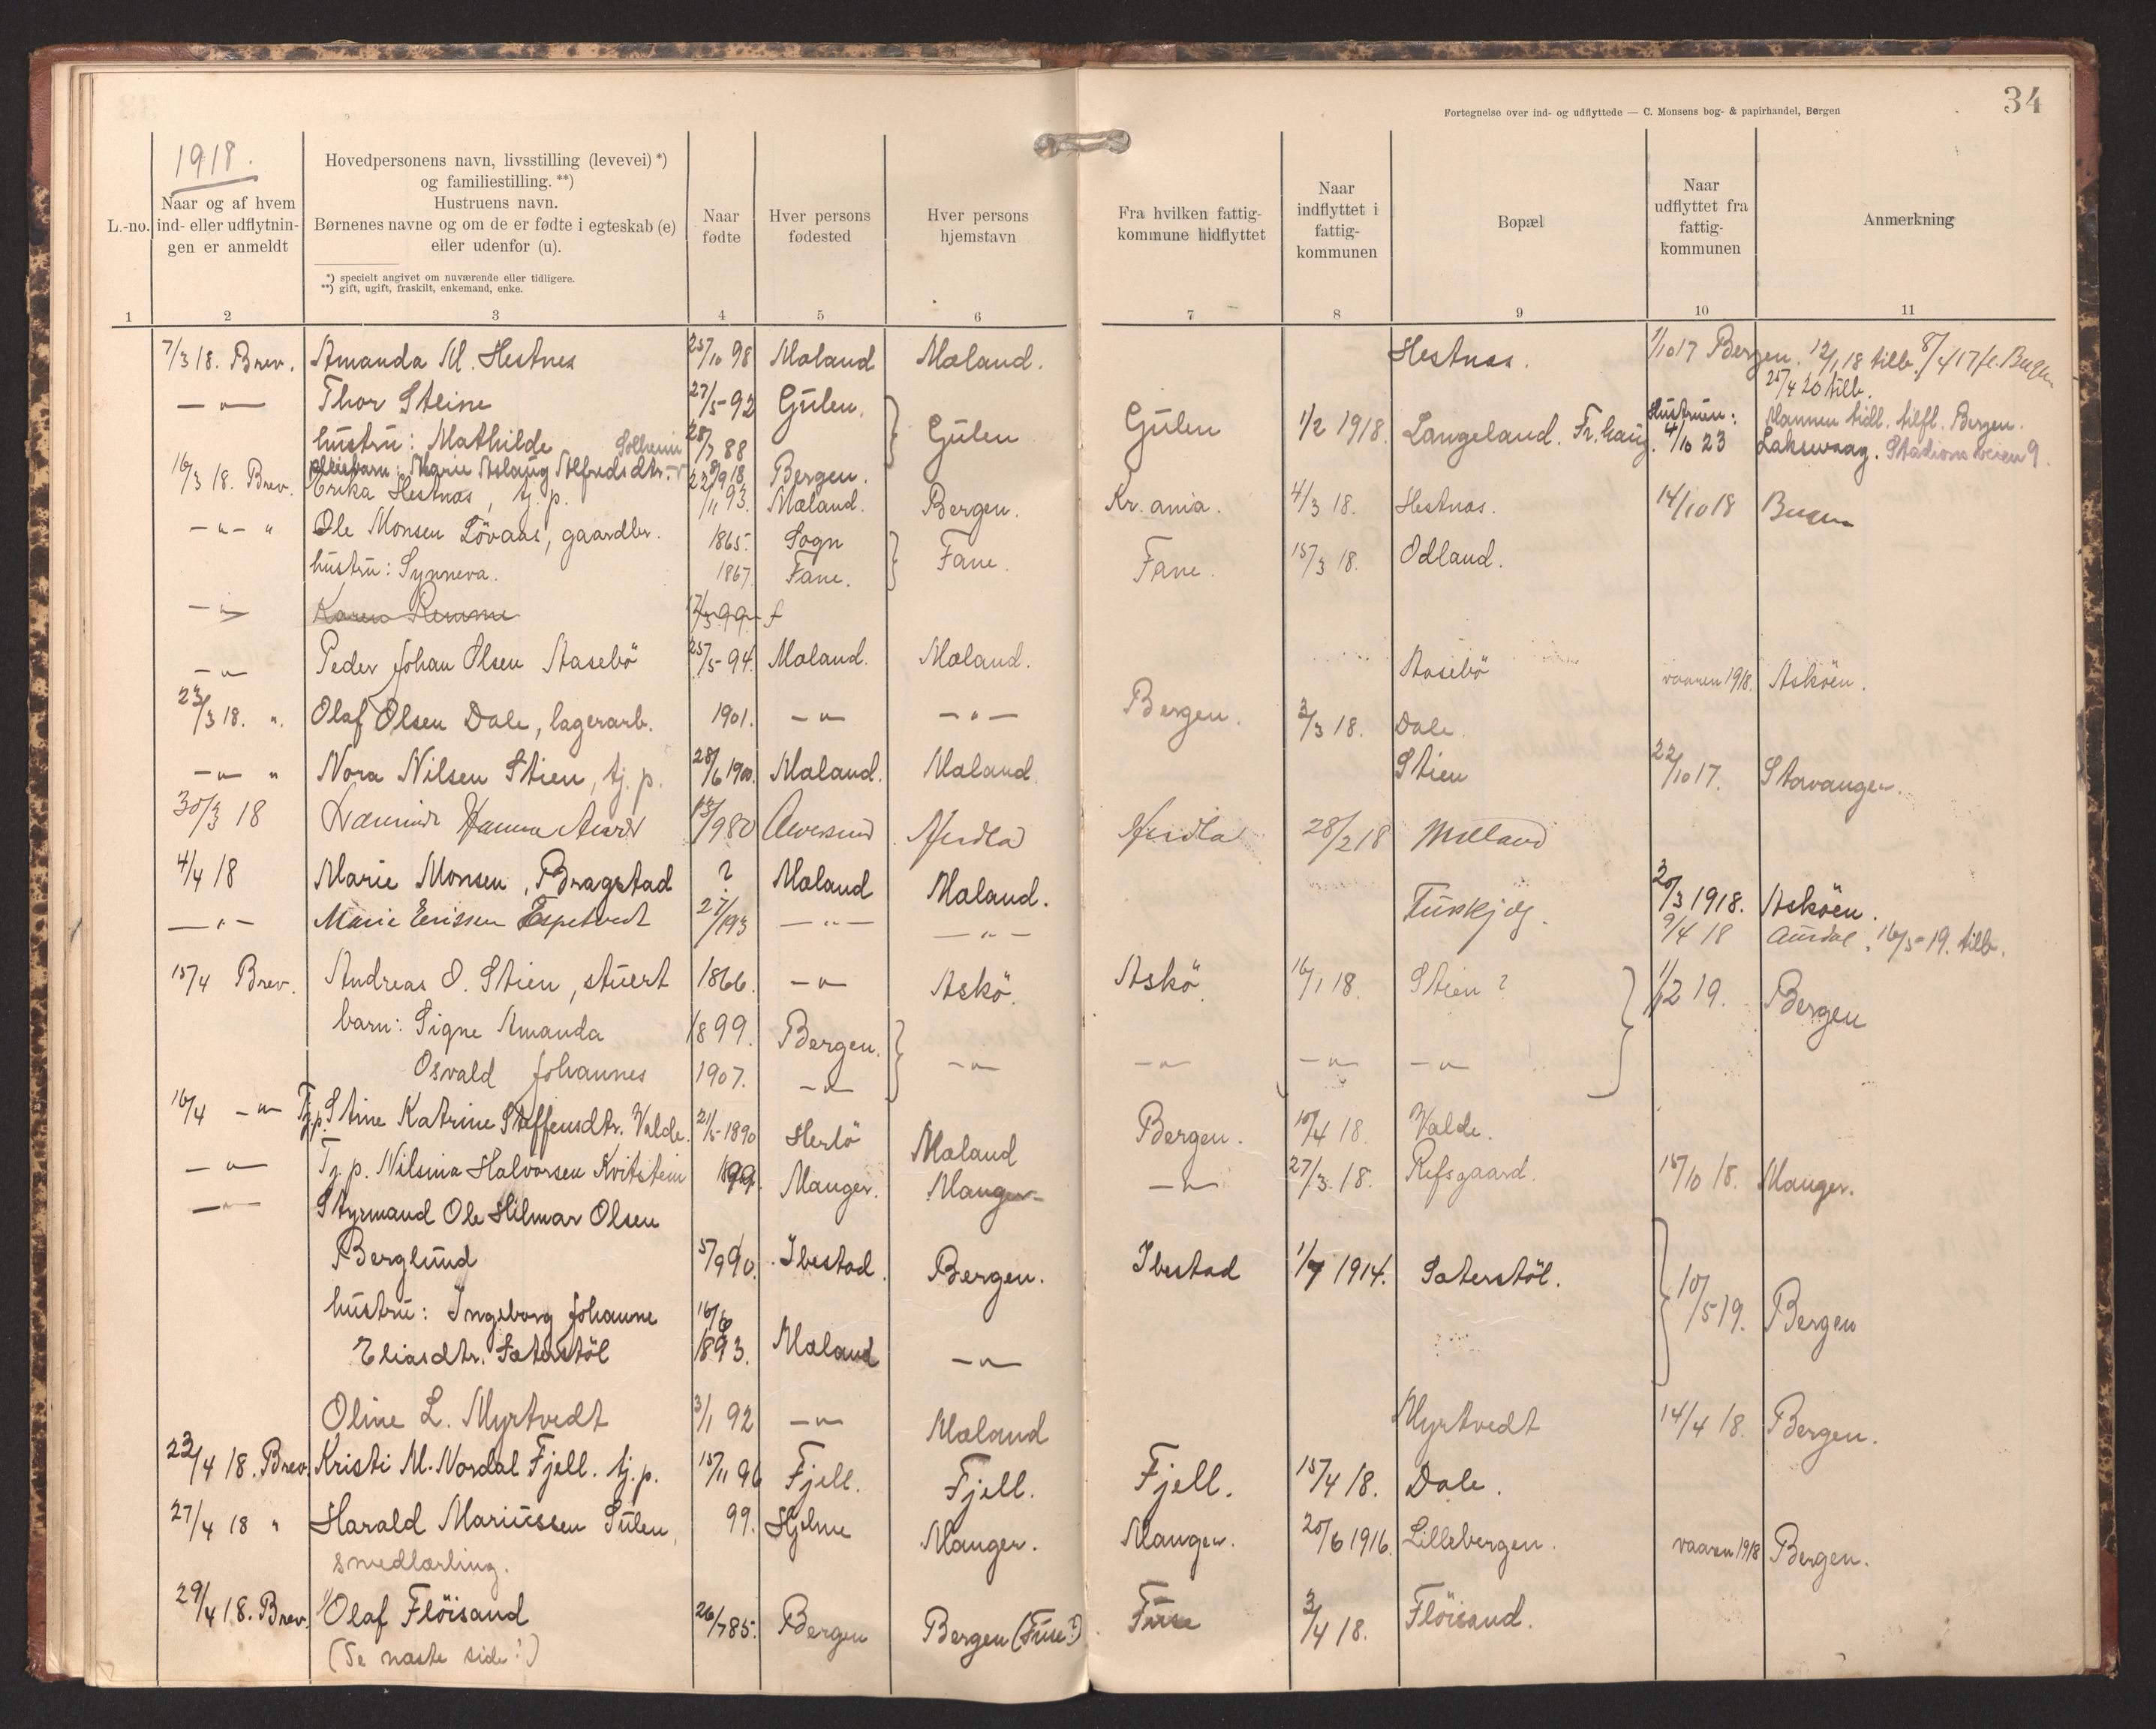 34
Fortegnelse over ind- og udflyttede — C. Monsens bog- & papirhandel, Bergen
1918.
L.-no.
Naar og af hvem ind- eller udflytningen er anmeldt
Hovedpersonens navn, livsstilling (levevei) *)
og familiestilling. **)
Hustruens navn.
Børnenes navne og om de er fødte i egteskab (e)
eller udenfor (u).
*) specielt angivet om nuværende eller tidligere.
**) gift, ugift, fraskilt, enkemand, enke.
Naar fødte
Hver persons fødested
Hver persons hjemstavn
Fra hvilken fattigkommune hidflyttet
Naar indflyttet i fattigkommunen
Bopæl
Naar udflyttet fra fattigkommunen
Anmerkning
1 2 3 4 5 6 7 8 9 10 11
7/3 18. Brev. Amanda M. Hestnes 25/10 98 Mæland Mæland. Hestnæs. 1/10 17 Bergen. 12/1 18 tilb. 8/4 17 fl. Bergen
25/4 20 tilb.
—"— Thor Steine 27/5-92 Gulen. Gulen Gulen 1/2 1918. Langeland. Fr.haug. Hustruen: 4/10 23 Mannen tidl. tilfl. Bergen.
hustru: Mathilde Solheim 28/7 88 Laksevaag. Stadionsveien 9.
pleiebarn: Marie Aslaug Alfredsdtr. 8/9 18 Bergen.
16/3 18. Brev. Erika Hestnæs, tj. p. 22/11 93. Mæland. Bergen. Kr.ania. 4/3 18. Hestnæs. 14/10 18 Bergen
—"— " Ole Monsen Lövaas, gaardbr. 1865. Sogn Fane. Fane. 15/3 18. Odland.
hustru: Synneva. 1867. Fane.
—"— Karen Remme 99 f
—"— Peder Johan Olsen Aasebö 25/5-94. Mæland. Mæland. Aasebö vaaren 1918. Asköen.
23/3 18. ". Olaf Olsen Dale, lagerarb. 1901. —"— —"— Bergen. 3/3 18. Dale.
—"— " Nora Nilsen Stien, tj. p. 28/6 1900. Mæland. Mæland. Stien 22/10 17. Stavanger.
30/3 18 Hanna 9 80 Alversund Herdla Herdla 28/2 18
4/4 18 Marie Monsen, Bragstad ? Mæland Mæland. 20/3 1918. Asköen.
—"— Marie Erissen Espetvedt 27/1 93 —"— —"— 9/4 18 Aurdal. 16/5-19. tilb.
15/4 Brev. Andreas O. Stien, stuert 1866. —"— Askö. Askö. 16/1 18. Stien? 1/12 19. Bergen
barn: Signe Amanda 1899. Bergen. —"— —"— —"— —"—
Osvald Johannes 1907. —"—
16/4 —"— Tj.p. Stine Katrine Steffensdtr. Valde. 21/5-1890 Herlö Mæland Bergen. 10/4 18. Valde.
—"— Tj. p. Nilsina Halvorsen Kvitstein 1899. Manger. Manger. —"— 27/3. 18. Refsgaard. 15/10 18. Manger.
—"— Styrmand Ole Hilmar Olsen
Berglund 5/9 90. Ibestad. Bergen. Ibestad 1/7 1914. Sæterstöl. 10/5-19. Bergen
hustru: Ingeborg Johanne 16/6
Eliasdtr. Sæterstöl 1893. Mæland —"—
Oline L. Myrtvedt 3/1 92 —"— Mæland Myrtvedt 14/4 18. Bergen.
23/4 18. Brev. Kristi M. Nordal Fjell. tj. p. 15/11 96 Fjell. Fjell. Fjell. 15/4 18. Dale.
27/4 18 " Harald Mariussen Sulen, 99. Hjelme Manger. Manger. 20/6 1916. Lillebergen. vaaren 1918 Bergen.
smedlærling.
29/4 18. Brev. Olaf Flöisand 26/7 85. Bergen Bergen (Fuse?) Fuse 3/4 18. Flöisand.
(Se næste side!)